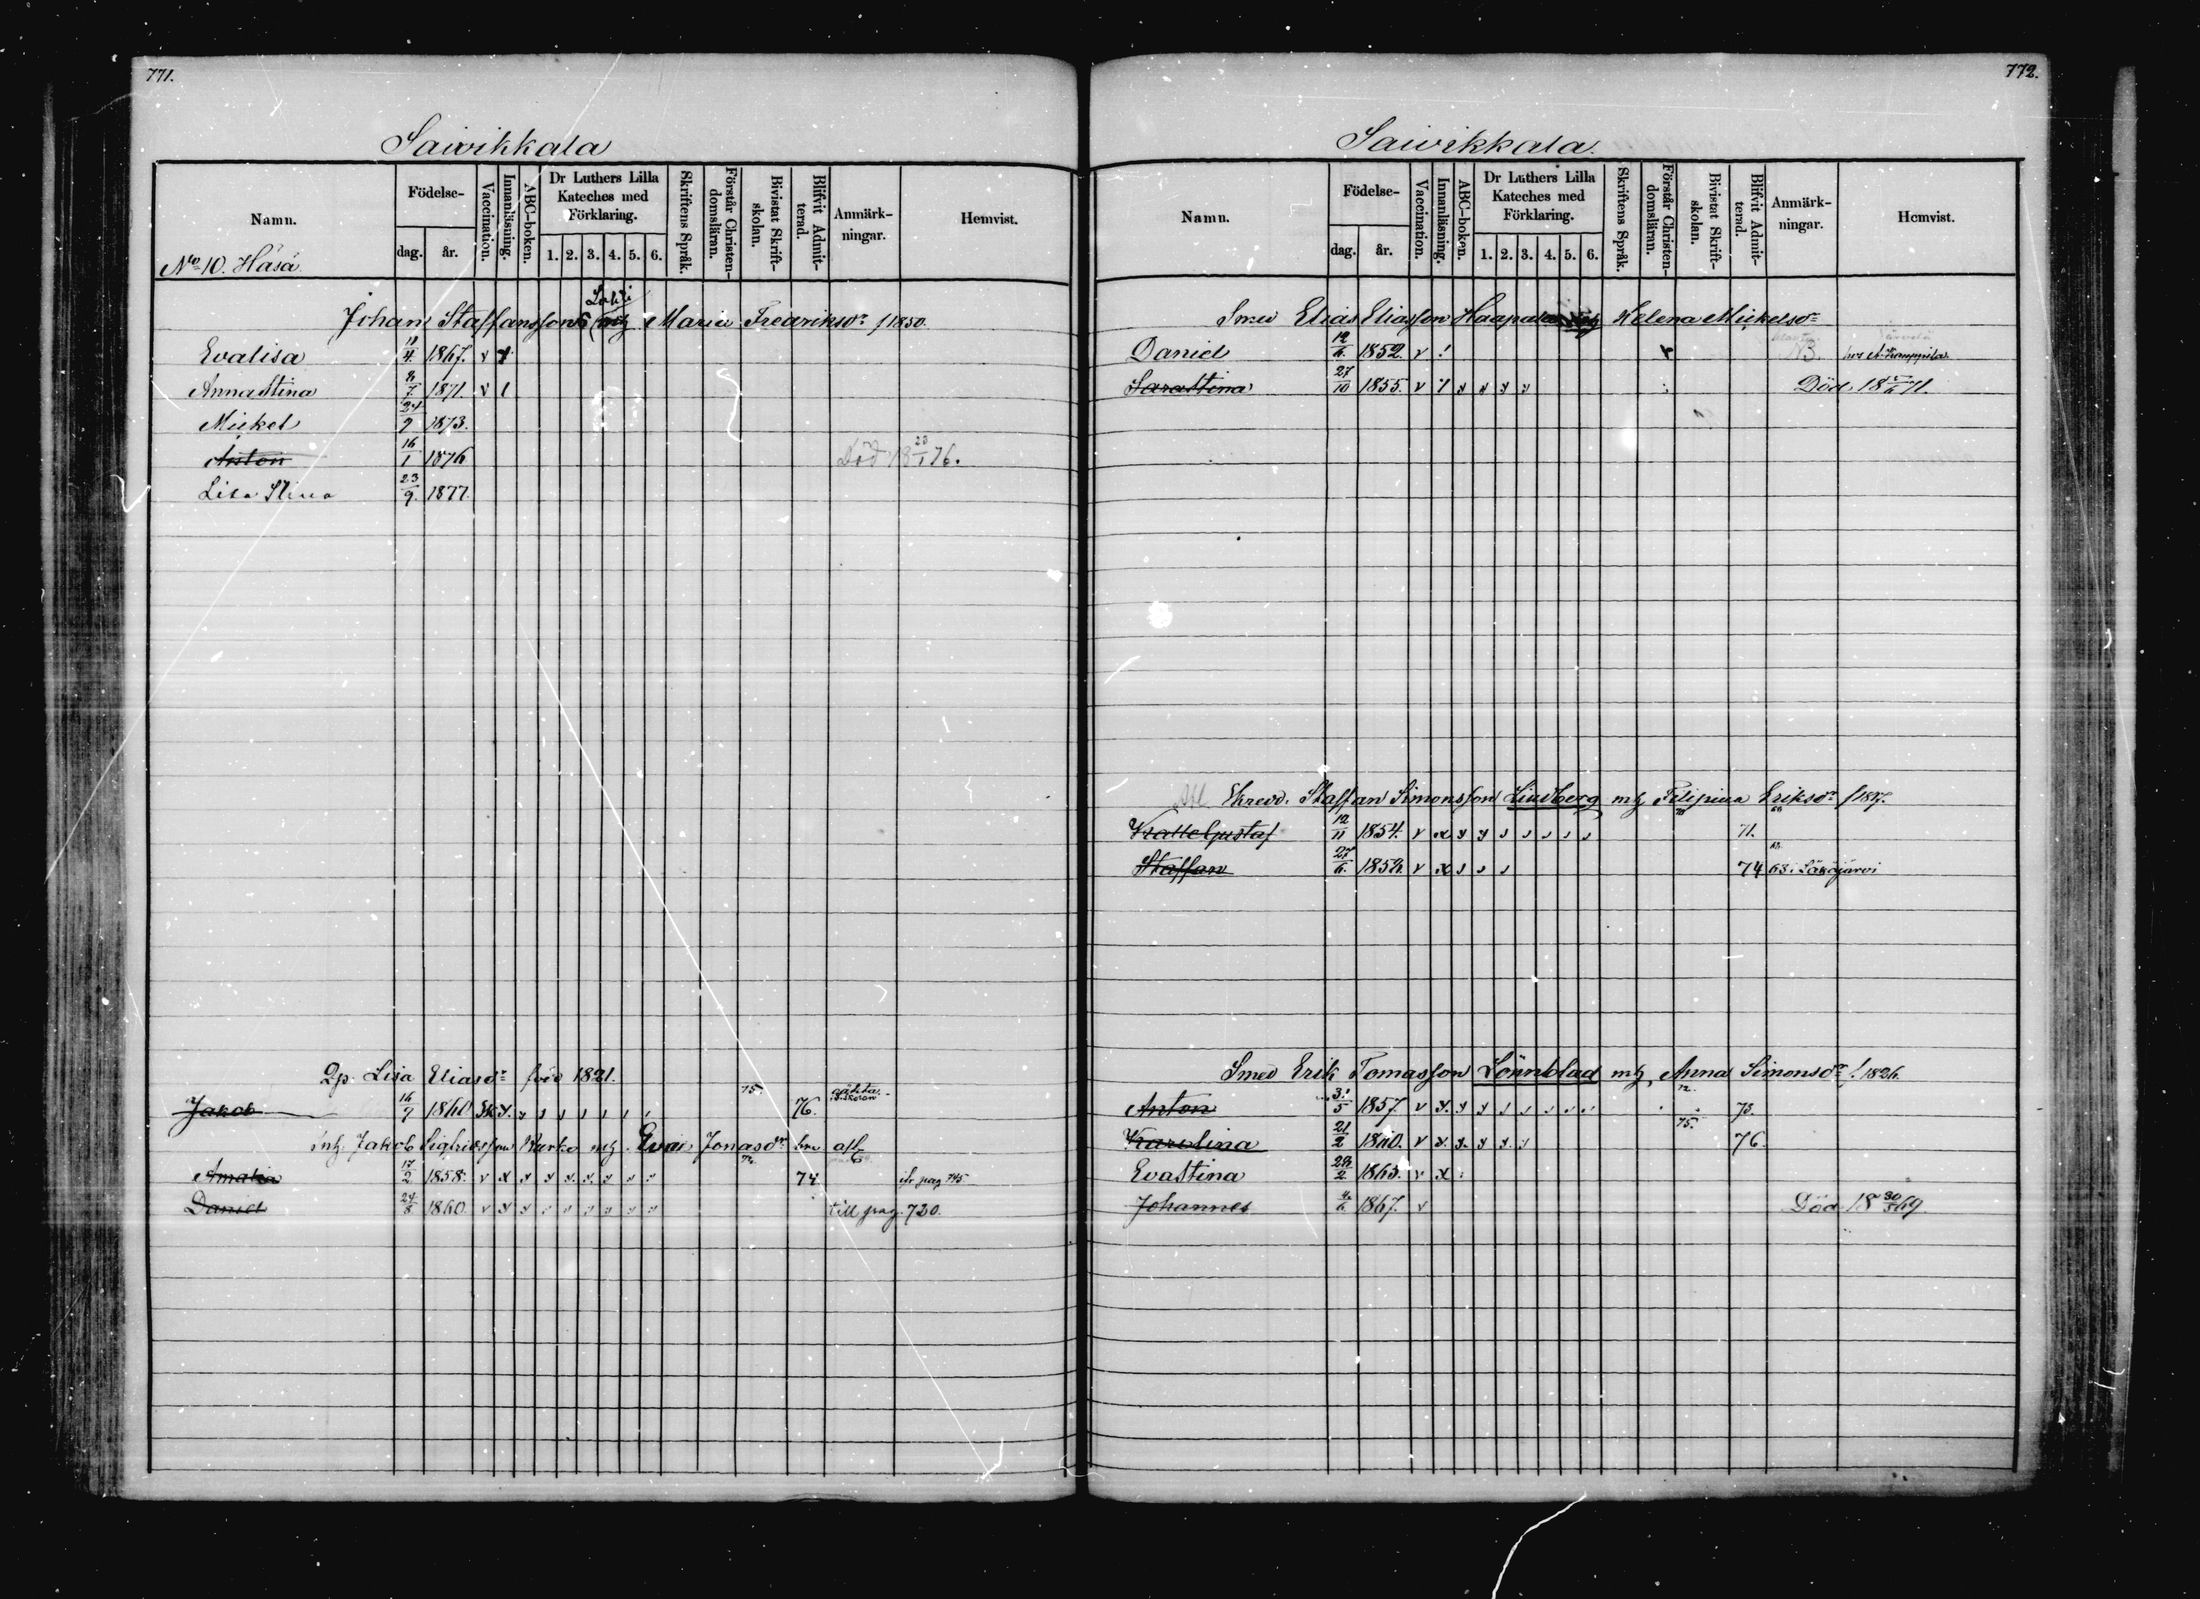 771.
Saivikkala
Namn.
Födelse-
dag.
år.
Vaccination.
Innanläsning.
ABC-boken.
Dr Luthers Lilla
Kateches med
Förklaring.
1. 2. 3. 4. 5. 6.
Skriftens Språk.
Förstår Christen-
domsläran.
Bivistat Skrift-
skolan.
Blifvit Admit-
terad.
Anmärk-
ningar.
Hemvist.
No 10. Hasa
Lahti
Johan Staffansson mtg Maria Fredriksdr f 1850.
Evalisa 11/4 1867. v x
Annastina 8/7 1871. v 1
Mickel 24/9 1873.
Anton 16/1 1876 Död 18 23/1 76.
Lisa Stina 23/9. 1877.
Lisa Eliasdr född 1821.
Jakob 16/9 1860 75. 76.
Jakob Sigfridsson mtg Jonasdr
Amalia 17/2 1858. v x 74 pag 745
Daniel 24/8 1860 v x till pag. 720.
772.
Saivikkala.
Namn.
Födelse-
dag.
år.
Vaccination.
Innanläsning.
ABC-boken.
Dr Luthers Lilla
Kateches med
Förklaring.
1. 2. 3. 4. 5. 6.
Skriftens Språk.
Förstår Christen-
domsläran.
Bivistat Skrift-
skolan.
Blifvit Admit-
terad.
Anmärk-
ningar.
Hemvist.
Smed Elias Eliasson Haapala Helena Mickelsdr
Daniel 12/6. 1852. v NB.
Sarastina 27/10 1855. v Död 18 71.
Skredd. Staffan Simonsson Lindberg mtg Filipina Eriksdr f 1827.
Kalle Gustaf 12/11 1854. v x 71.
Staffan 27/6. 1856. v x 74 Säräjärvi
Smed Erik Tomasson Lönnblad mtg Anna Simonsdr f. 1826.
Anton 31/5 1857. v 73.
Karolina 21/2 1860. v 75. 76.
Evastina 1863. v x
Johannes 1867. v Död 18 30/5 69